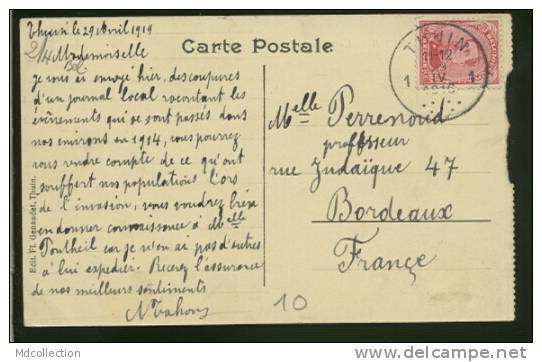 Thuin le 29 Avril 1919
Mademoiselle
Je vous ai envoyé hier, des coupures
d'un journal local racontant les
évènements qui se sont passés dans
nos environs en 1914, vous pourrez
vous rendre compte de ce qu'ont
souffert nos populations lors
de l'invasion, vous voudrez bien
en donner connaissance à Melle
Pontheil car je n'en ai pas d'autres
à lui expedier. Recevez l'assurance
de nos meilleurs sentiments
Edit. Fl. Genaudet, Thuin.
Carte Postale
THUIN
12
1 IV 1
Melle Perrenoud
professeur
rue Judaïque 47
Bordeaux
France
10
Mdcollection
http://www.delcampe.net